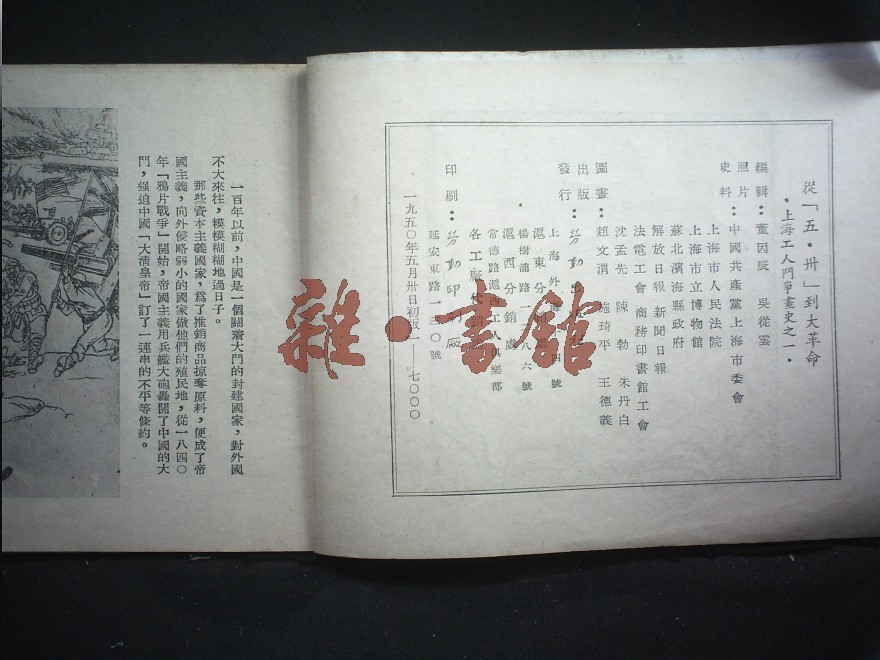 從「五·卅」到大革命
·上海工人鬥爭畫史之一·
編輯：董因辰 吳從雲
照片：中國共產黨上海市委會
史料
上海市人民法院
上海市立博物館
蘇北濱海縣政府
解放日報 新聞日報
法電工會 商務印書館工會
圖畫：趙文渭 施琦平 王德義
沈孟先 陳勃 朱丹白
出版：勞動出
發行
上海外 四號
滬東分
楊樹浦路一 八六號
滬西分銷處
常德路滬西工人俱樂部
各工廠代
印刷：勞動印刷
延安東路一三〇號
一九五〇年五月卅日初版一——七〇〇〇
一百年以前，中國是一個關着大門的封建國家，對外國
不大來往，糢糢糊糊地過日子。
那些資本主義國家，爲了推銷商品掠奪原料，便成了帝
國主義，向外侵略弱小的國家做他們的殖民地，從一八四〇
年「鴉片戰爭」開始，帝國主義用兵艦大砲轟開了中國的大
門，强迫中國「大清皇帝」訂了一連串的不平等條約。
雜·書館